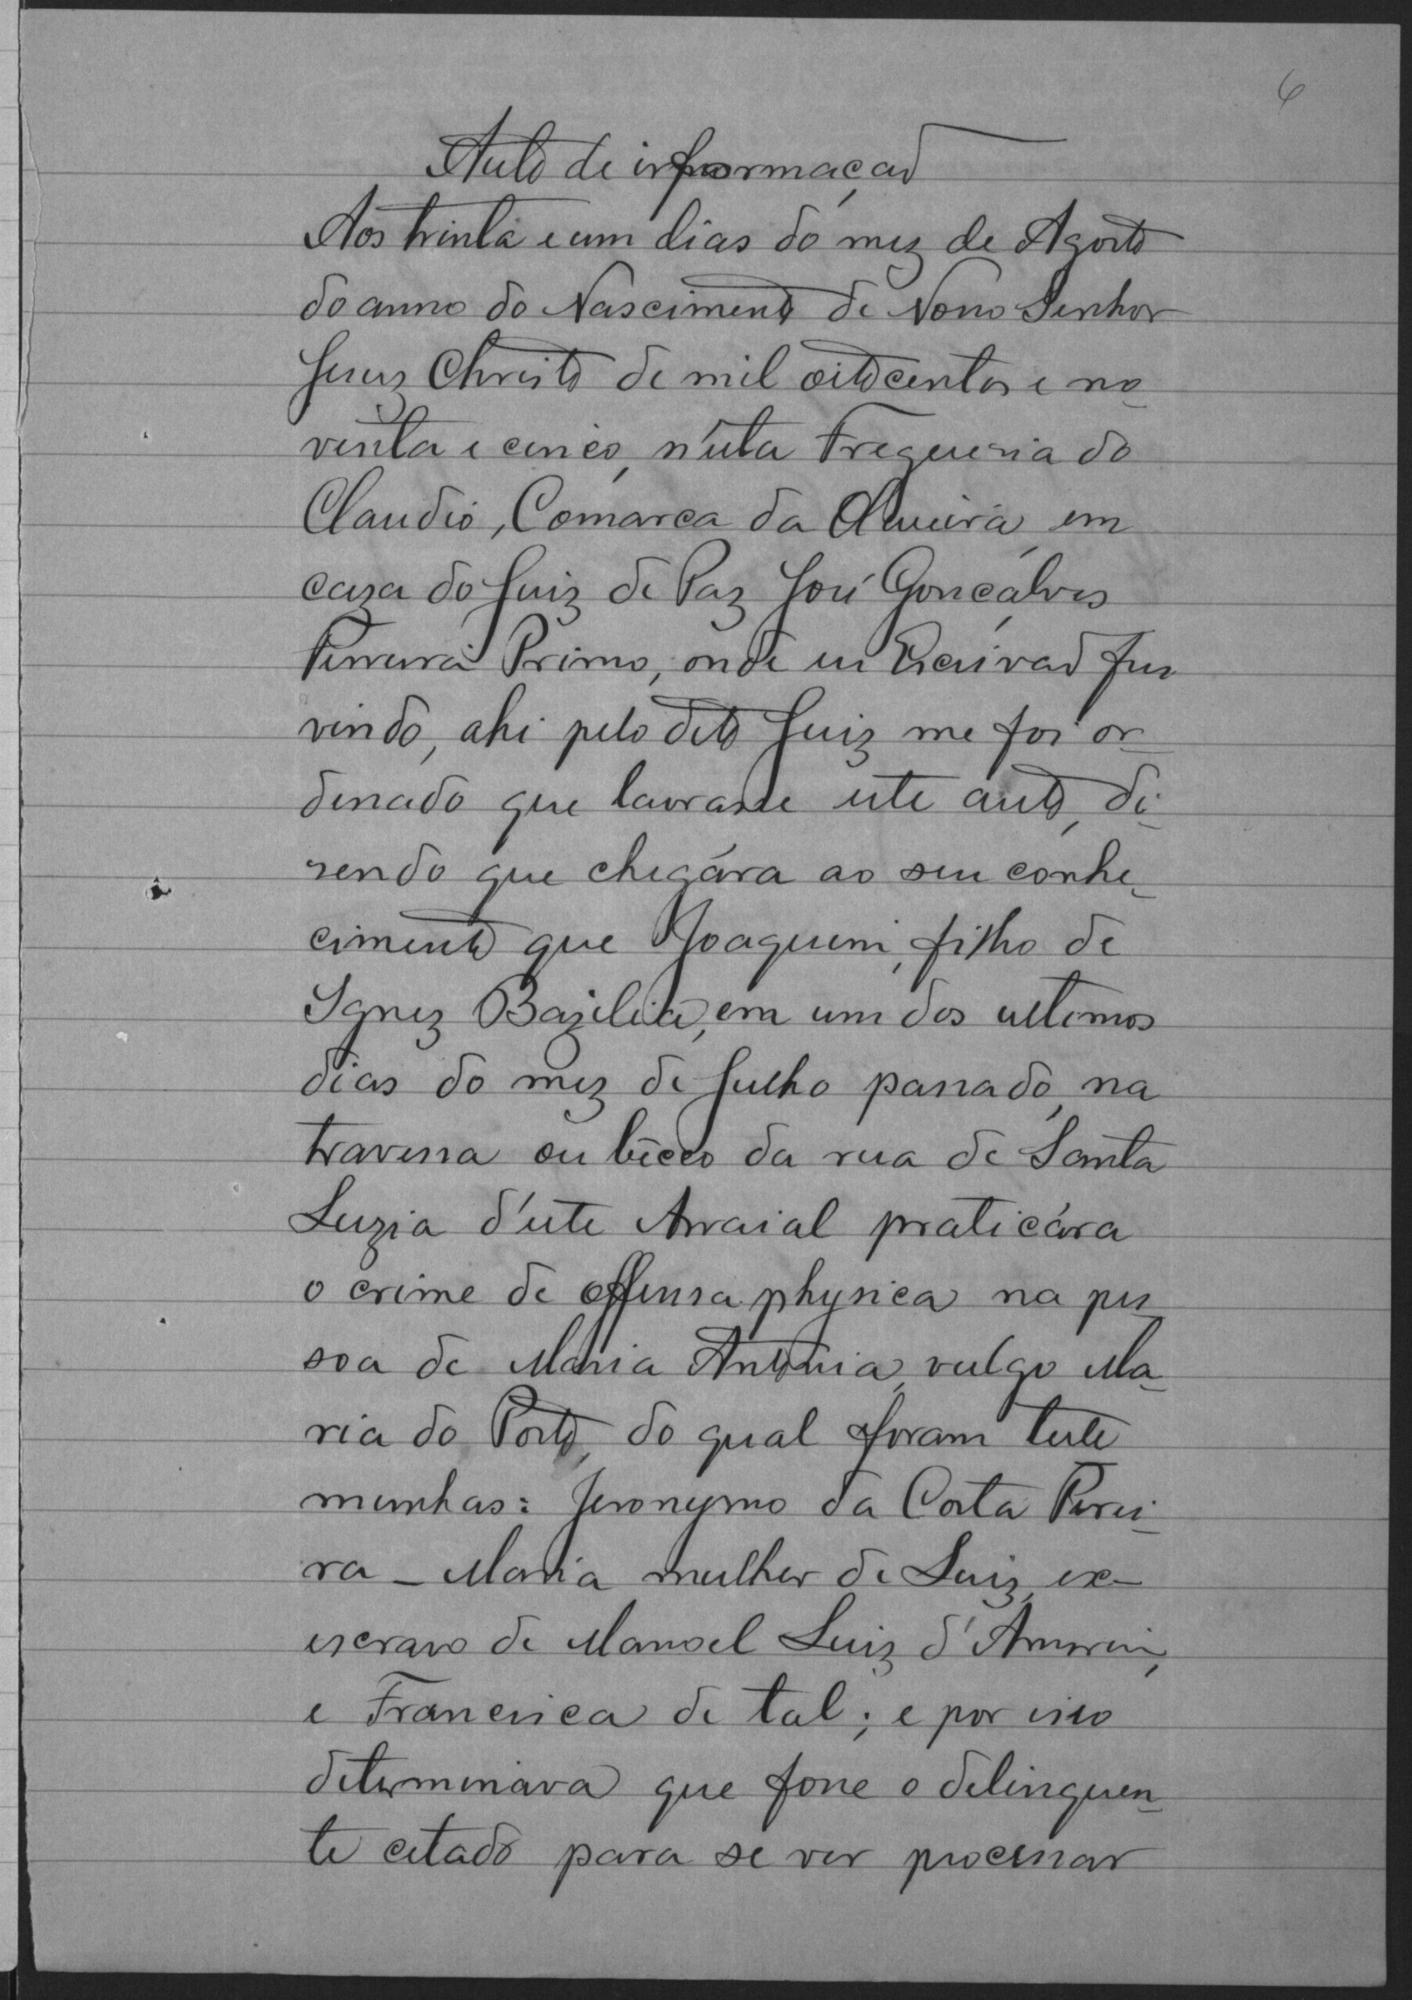 6
Auto de informação
Aos trinta e um dias do mez de Agosto
do anno do Nascimento de Nosso Senhor
Jesus Christo de mil oitocentos e no-
venta e cinco, n'esta Freguesia do
Claudio, Comarca da Oliveira, em
caza do Juiz de Paz José Gonçalves
Ferreira Primo, onde eu Escrivão fui
vindo, ahi pelo dito Juiz me foi or-
denado que lavrasse este auto, di-
sendo que chegára ao seu conhe-
cimento que Joaquim, filho de
Ignez Bazilia, em um dos ultimos
dias do mez de Julho passado, na
travessa ou becco da rua de Santa
Luzia d'este Arraial praticára
o crime de offensa physica na pes
soa de Maria Antonia, vulgo Ma-
ria do Porto, do qual foram teste
munhas: Jeronymo da Costa Perei-
ra - Maria mulher de Luiz, ex-
escravo de Manoel Luiz d'Amorim,
e Francisca de tal; e por isso
determinava que fosse o delinquen-
te citado para se ver processar